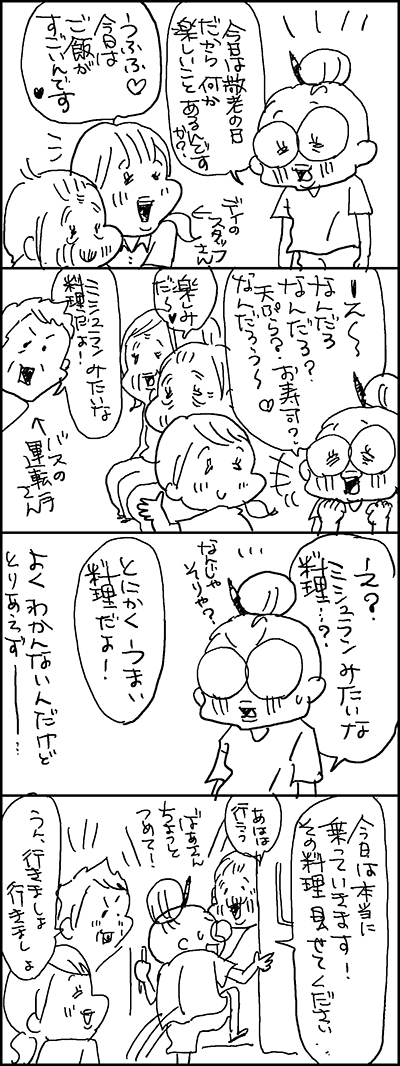 今日は敬老の日
だから何か
楽しいこと
あるんです
か?
うふふ♡
今日は
ご飯が
すごいんです
♥
デイの
スタッフ
さん
え〜
なんだろ
なんだろ?
天ぷら?お寿司?
なんだろう〜♡
楽しみ
だ〜♥
ミシュランみたいな
料理だよ!
バスの
運転手
さん
え?
ミシュランみたいな
料理…?
なんじゃ
そりゃ?
とにかくうまい
料理だよ!
よくわかんないんだけど
とりあえず
今日は本当に
乗っていきます!
その料理見せてください
あはは
行こう
ばあさん
ちょっと
つめて!
うん、行きましょ
行きましょ